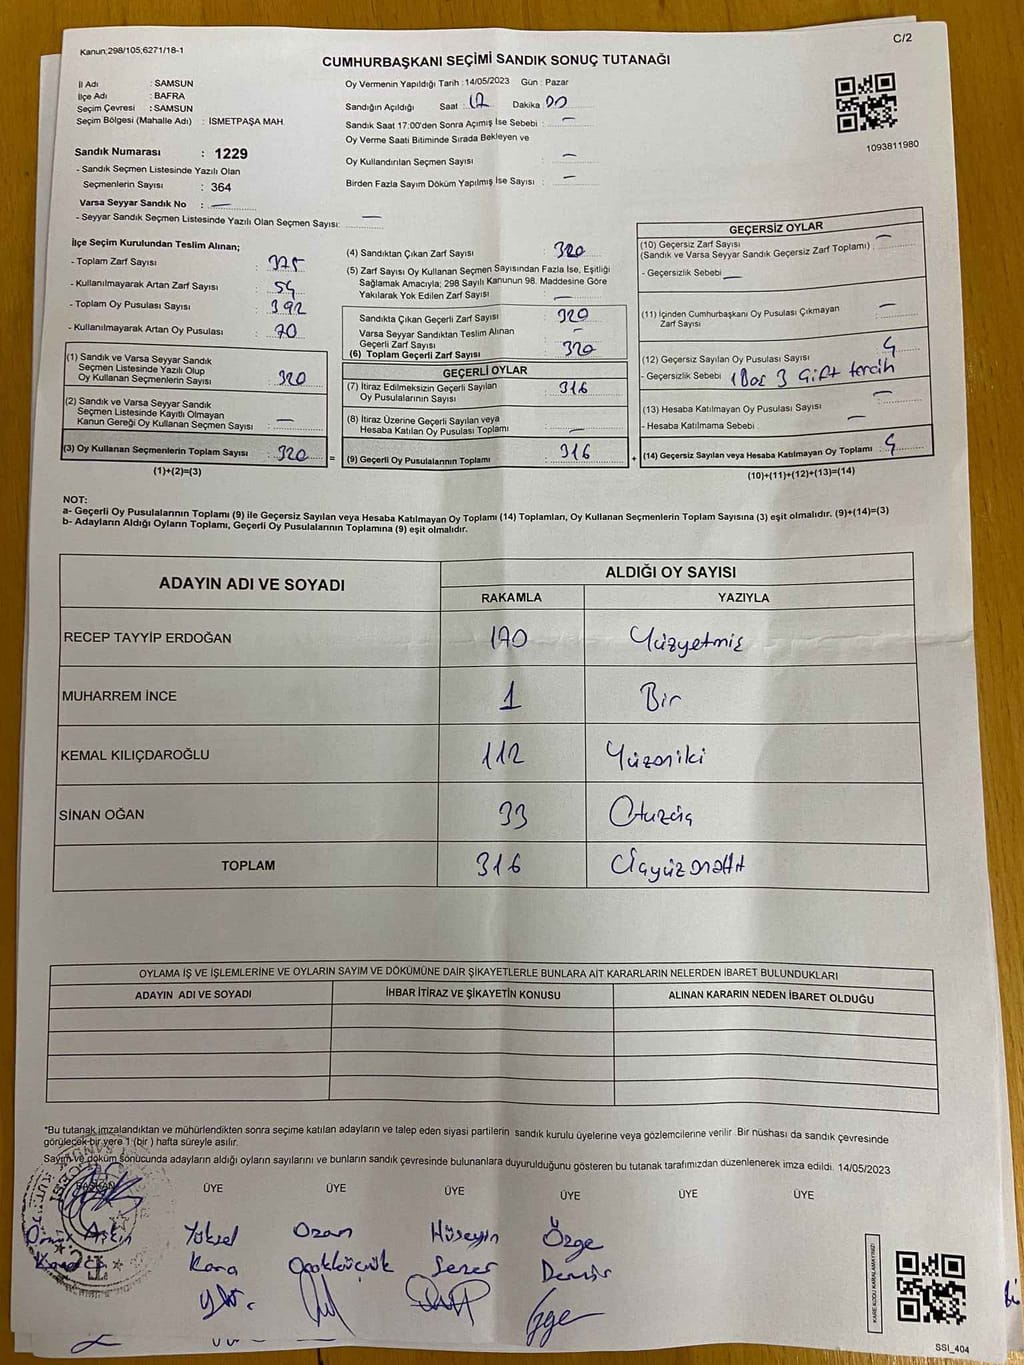 Kanun;298/105;6271/18-1
C/2
CUMHURBAŞKANI SEÇİMİ SANDIK SONUÇ TUTANAĞI
İl Adı : SAMSUN
İlçe Adı : BAFRA
Seçim Çevresi : SAMSUN
Seçim Bölgesi (Mahalle Adı) : İSMETPAŞA MAH.
Sandık Numarası : 1229
- Sandık Seçmen Listesinde Yazılı Olan
Seçmenlerin Sayısı : 364
Varsa Seyyar Sandık No : —
- Seyyar Sandık Seçmen Listesinde Yazılı Olan Seçmen Sayısı: —
Oy Vermenin Yapıldığı Tarih : 14/05/2023 Gün : Pazar
Sandığın Açıldığı Saat : 17 Dakika : 00
Sandık Saat 17:00'den Sonra Açımış İse Sebebi : —
Oy Verme Saati Bitiminde Sırada Bekleyen ve
Oy Kullandırılan Seçmen Sayısı : —
Birden Fazla Sayım Döküm Yapılmış İse Sayısı : —
1093811980
İlçe Seçim Kurulundan Teslim Alınan;
- Toplam Zarf Sayısı : 375
- Kullanılmayarak Artan Zarf Sayısı : 54
- Toplam Oy Pusulası Sayısı : 392
- Kullanılmayarak Artan Oy Pusulası : 70
(1) Sandık ve Varsa Seyyar Sandık
Seçmen Listesinde Yazılı Olup
Oy Kullanan Seçmenlerin Sayısı : 320
(2) Sandık ve Varsa Seyyar Sandık
Seçmen Listesinde Kayıtlı Olmayan
Kanun Gereği Oy Kullanan Seçmen Sayısı : —
(3) Oy Kullanan Seçmenlerin Toplam Sayısı : 320
(1)+(2)=(3)
(4) Sandıktan Çıkan Zarf Sayısı : 320
(5) Zarf Sayısı Oy Kullanan Seçmen Sayısından Fazla İse, Eşitliği
Sağlamak Amacıyla; 298 Sayılı Kanunun 98. Maddesine Göre
Yakılarak Yok Edilen Zarf Sayısı : —
Sandıkta Çıkan Geçerli Zarf Sayısı : 320
Varsa Seyyar Sandıktan Teslim Alınan
Geçerli Zarf Sayısı : —
(6) Toplam Geçerli Zarf Sayısı : 320
GEÇERLİ OYLAR
(7) İtiraz Edilmeksizin Geçerli Sayılan
Oy Pusulalarının Sayısı : 316
(8) İtiraz Üzerine Geçerli Sayılan veya
Hesaba Katılan Oy Pusulası Toplamı : —
= (9) Geçerli Oy Pusulalarının Toplamı : 316
GEÇERSİZ OYLAR
(10) Geçersiz Zarf Sayısı
(Sandık ve Varsa Seyyar Sandık Geçersiz Zarf Toplamı) : —
- Geçersizlik Sebebi : —
(11) İçinden Cumhurbaşkanı Oy Pusulası Çıkmayan
Zarf Sayısı : —
(12) Geçersiz Sayılan Oy Pusulası Sayısı : 4
- Geçersizlik Sebebi : 1 Boş 3 Çift tercih
(13) Hesaba Katılmayan Oy Pusulası Sayısı : —
- Hesaba Katılmama Sebebi : —
+ (14) Geçersiz Sayılan veya Hesaba Katılmayan Oy Toplamı : 4
(10)+(11)+(12)+(13)=(14)
NOT:
a- Geçerli Oy Pusulalarının Toplamı (9) ile Geçersiz Sayılan veya Hesaba Katılmayan Oy Toplamı (14) Toplamları, Oy Kullanan Seçmenlerin Toplam Sayısına (3) eşit olmalıdır. (9)+(14)=(3)
b- Adayların Aldığı Oyların Toplamı, Geçerli Oy Pusulalarının Toplamına (9) eşit olmalıdır.
ADAYIN ADI VE SOYADI ALDIĞI OY SAYISI
RAKAMLA YAZIYLA
RECEP TAYYİP ERDOĞAN 170 Yüzyetmiş
MUHARREM İNCE 1 Bir
KEMAL KILIÇDAROĞLU 112 Yüzoniki
SİNAN OĞAN 33 Otuzüç
TOPLAM 316 Üçyüzonaltı
OYLAMA İŞ VE İŞLEMLERİNE VE OYLARIN SAYIM VE DÖKÜMÜNE DAİR ŞİKAYETLERLE BUNLARA AİT KARARLARIN NELERDEN İBARET BULUNDUKLARI
ADAYIN ADI VE SOYADI İHBAR İTİRAZ VE ŞİKAYETİN KONUSU ALINAN KARARIN NEDEN İBARET OLDUĞU
*Bu tutanak imzalandıktan ve mühürlendikten sonra seçime katılan adayların ve talep eden siyasi partilerin sandık kurulu üyelerine veya gözlemcilerine verilir. Bir nüshası da sandık çevresinde
görülecek bir yere 1 (bir) hafta süreyle asılır.
Sayım ve döküm sonucunda adayların aldığı oyların sayılarını ve bunların sandık çevresinde bulunanlara duyurulduğunu gösteren bu tutanak tarafımızdan düzenlenerek imza edildi. 14/05/2023
BAŞKAN ÜYE ÜYE ÜYE ÜYE ÜYE ÜYE
Yüksel Ozan Hüseyin Özge
Kara Sezer Demir
KARE KODU KARALAMAYINIZ!
SSI_404